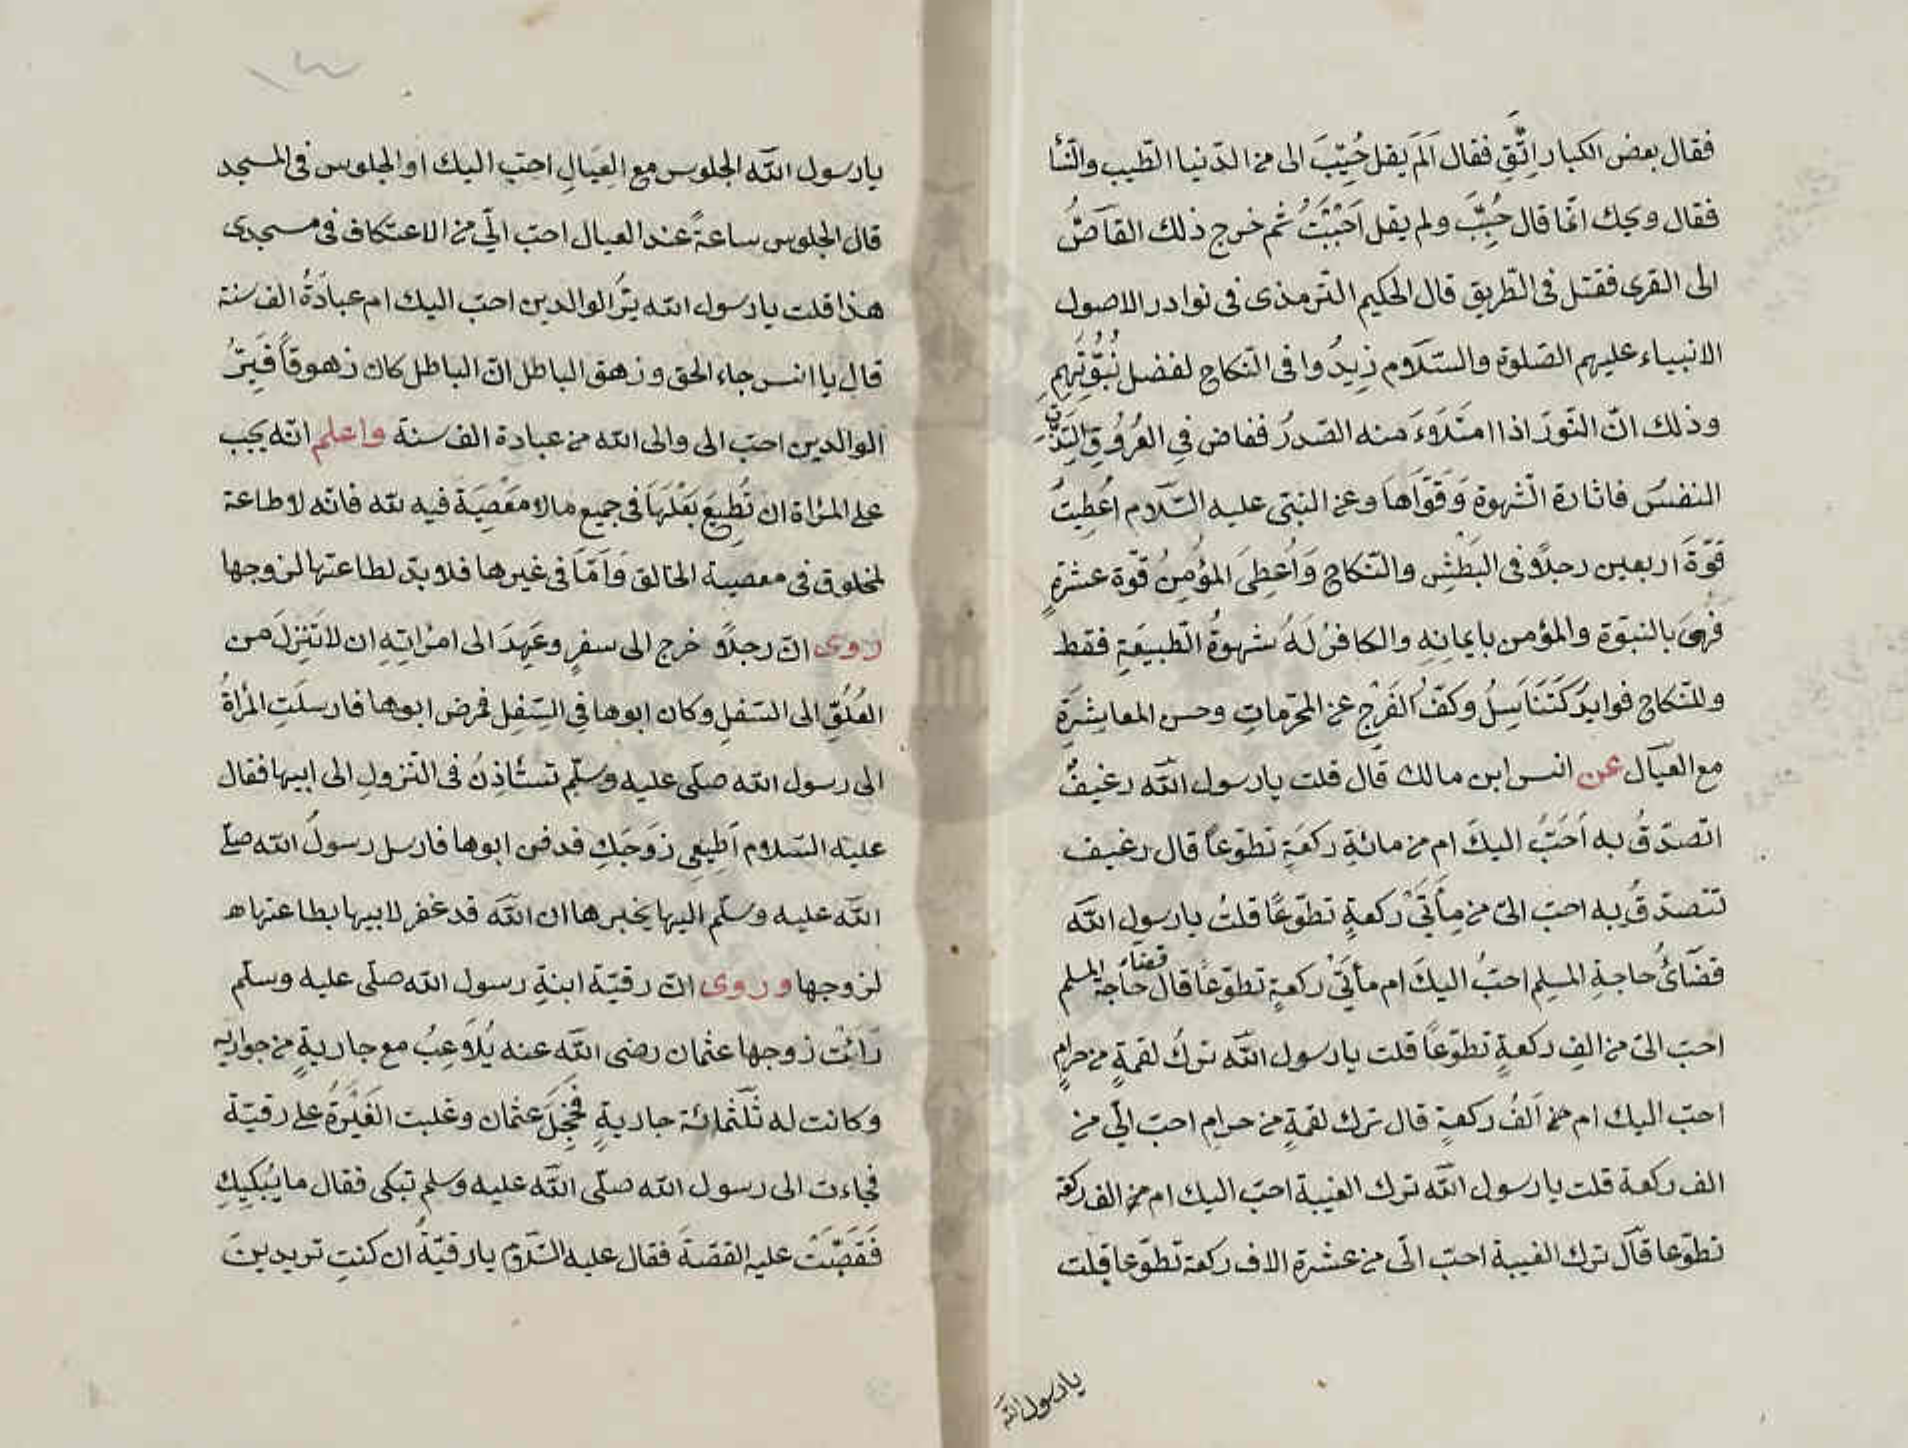 فقال بعض الكبار اِتَّقِ فقال اَلَم يقل حُبِّبَ الى من الدّنيا الطّيب والنّسا
فقال ويحك انّما قال حُبِّبَ ولم يقل اَحْبَبْتُ ثم خرج ذلك القاصُّ
الى القرى فقتل فى الطّريق قال الحكيم الترمذى فى نوادر الاصول
الانبياء عليهم الصّلوة والسّلام زِيدُوا فى النّكاح لفضل نُبُوَّتِهِم
وذلك انّ النّورَ اذا امتَلَاَءَ منه الصّدرُ ففاض فِى العُرُوقِ اِلتَذَّتِ
النفسُ فاثارة الشّهوة وَقَوَّاهَا وعن النبّى عليه السّلام اُعْطِيتُ
قوّةَ اربعين رجلًا فى البَطْشِ والنّكاح وَاُعْطِىَ المؤمِنُ قوّة عشرةٍ
فهىَ بالنبوّة والمؤمن بايمانِهِ والكافرُ لَهُ شهوةُ الطّبيعَةِ فقط
وللنّكاح فوايدُ كَتَنَاسُلُ وكَفُّ الفَرْجِ عن المحرّماتِ وحسن المعاشرَةِ
مع العيال عن انس ابن مالك قال قلت يارسول اللّه رغيفٌ
اتصدّقُ به اَحَبُّ اليكَ ام من مائةِ ركعَةٍ تطوّعاً قال رغيف
تتصدّقُ به احبّ الىّ من مِأتَىْ ركعةٍ تطوّعًا قلتُ يارسول اللّه
قضائُ حاجةِ المسلِمِ احبُّ اليكَ ام مأتَىْ ركعةٍ تطوّعًا قال قضاءُ حاجة المسلم
احبّ الىّ من الفِ ركعةٍ تطوّعاً قلت يارسول اللّه تركُ لقمةٍ من حرامٍ
احبّ اليك ام من اَلفُ ركعةٍ قال ترك لقمةٍ من حرامٍ احبّ الىّ من
الف ركعة قلت يارسول اللّه ترك الغيبة احبّ اليك ام من الف ركعة
تطوّعا قال ترك الغيبة احبّ الىّ من عشرةِ الاف ركعة تطوّعا قلت
يارسول اللّه
يارسول اللّه الجلوس مع العِيَالِ احبّ اليك او الجلوس فى المسجد
قال الجلوس ساعةً عند العيال احبّ الىّ من الاعتكاف فى مسجدى
هذا قلت يارسول اللّه بِرُّ الوالدين احبّ اليك ام عبادَةُ الف سنة
قال يا انس جاء الحق وزهق الباطل انّ الباطل كان زهوقًا فَبِرُّ
الوالدين احبّ الى والى اللّه من عبادة الف سنة واعلم انّه يجب
على المرْاة ان تُطِيعَ بَعْلَهَا فى جميع مالا مَعْصِيَةَ فيه للّه فانّه لاطاعة
لمخلوق فى معصية الخالق وَاَمّا فى غيرها فلا بدّ لطاعتها لزوجها
روى انّ رجلًا خرج الى سفرٍ وعَهِدَ الى امرْاتِهِ ان لاتَنْزِلَ من
العُلُوِّ الى السّفلِ وكان ابوها فِى السِّفلِ فمرض ابوها فارسلَتِ المرْاةُ
الى رسول اللّه صلّى عليه وسلّم تستْاذِنُ فى النّزولِ الى ابيها فقال
عليه السّلام اَطِيعِى زوجَكِ فدفن ابوها فارسل رسولُ اللّه صلّى
اللّه عليه وسلّم اليها يخبرها ان اللّه قد غفر لابيها بطاعتها ه
لزوجها وروى انّ رقيّة ابنةِ رسولِ اللّه صلّى عليه وسلّم
رَأَتْ زوجها عثمان رضى اللّه عنه يُلاَعِبُ مع جاريةٍ من جواريه
وكانت له ثلثمائة جاريةٍ فخَجِلَ عثمان وغلبت الغَيْرَةُ على رقيّة
فجاءت الى رسول اللّه صلّى اللّه عليه وسلم تبكى فقال مايُبْكِيكِ
فَقَصَّتْ عليه القصّةَ فقال عليه السّلام يارقيّةُ ان كنتِ تريدين